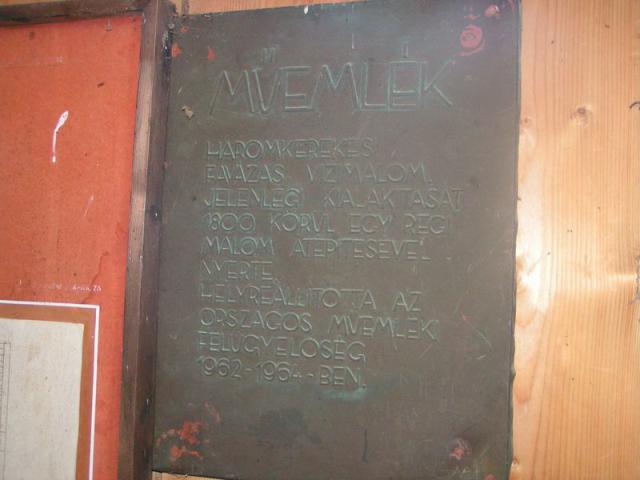 MŰEMLÉK
HÁROMKEREKES
FAVÁZAS VÍZIMALOM.
JELENLEGI KIALAKÍTÁSÁT
1800 KÖRÜL EGY RÉGI
MALOM ÁTÉPÍTÉSÉVEL
NYERTE.
HELYREÁLLÍTOTTA AZ
ORSZÁGOS MŰEMLÉKI
FELÜGYELŐSÉG
1962-1964-BEN.